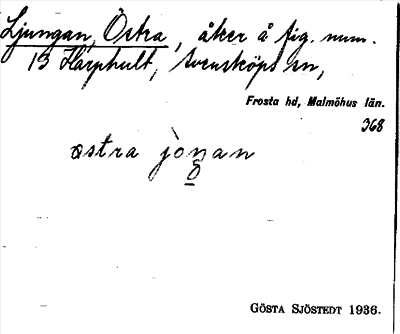 Ljungan, Östra, åker å fig. num.
13 Harphult, Svensköps sn,
Frosta hd, Malmöhus län.
368
østra jonan
o
GÖSTA SJÖSTEDT 1936.